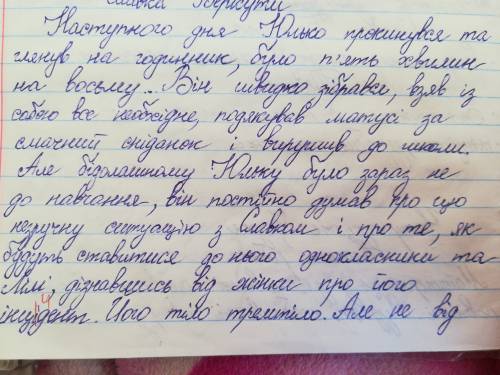 зберегти
Наступного дня Юлько прокинувся та
глянув на годинник, було п'ять хвилин
на восьму... Він швидко зібрався, взяв із
собою все необхідне, подякував матусі за
смачний сніданок і вирушив до школи.
Але бідолашному Юльку було зараз не
до навчання, він постійно думав про цю
незручну ситуацію з Славком і про те, як
будуть ставитися до нього однокласники та
Лілі, дізнавшись від жінки про його
інцидент. Його тіло тремтіло. Але не від